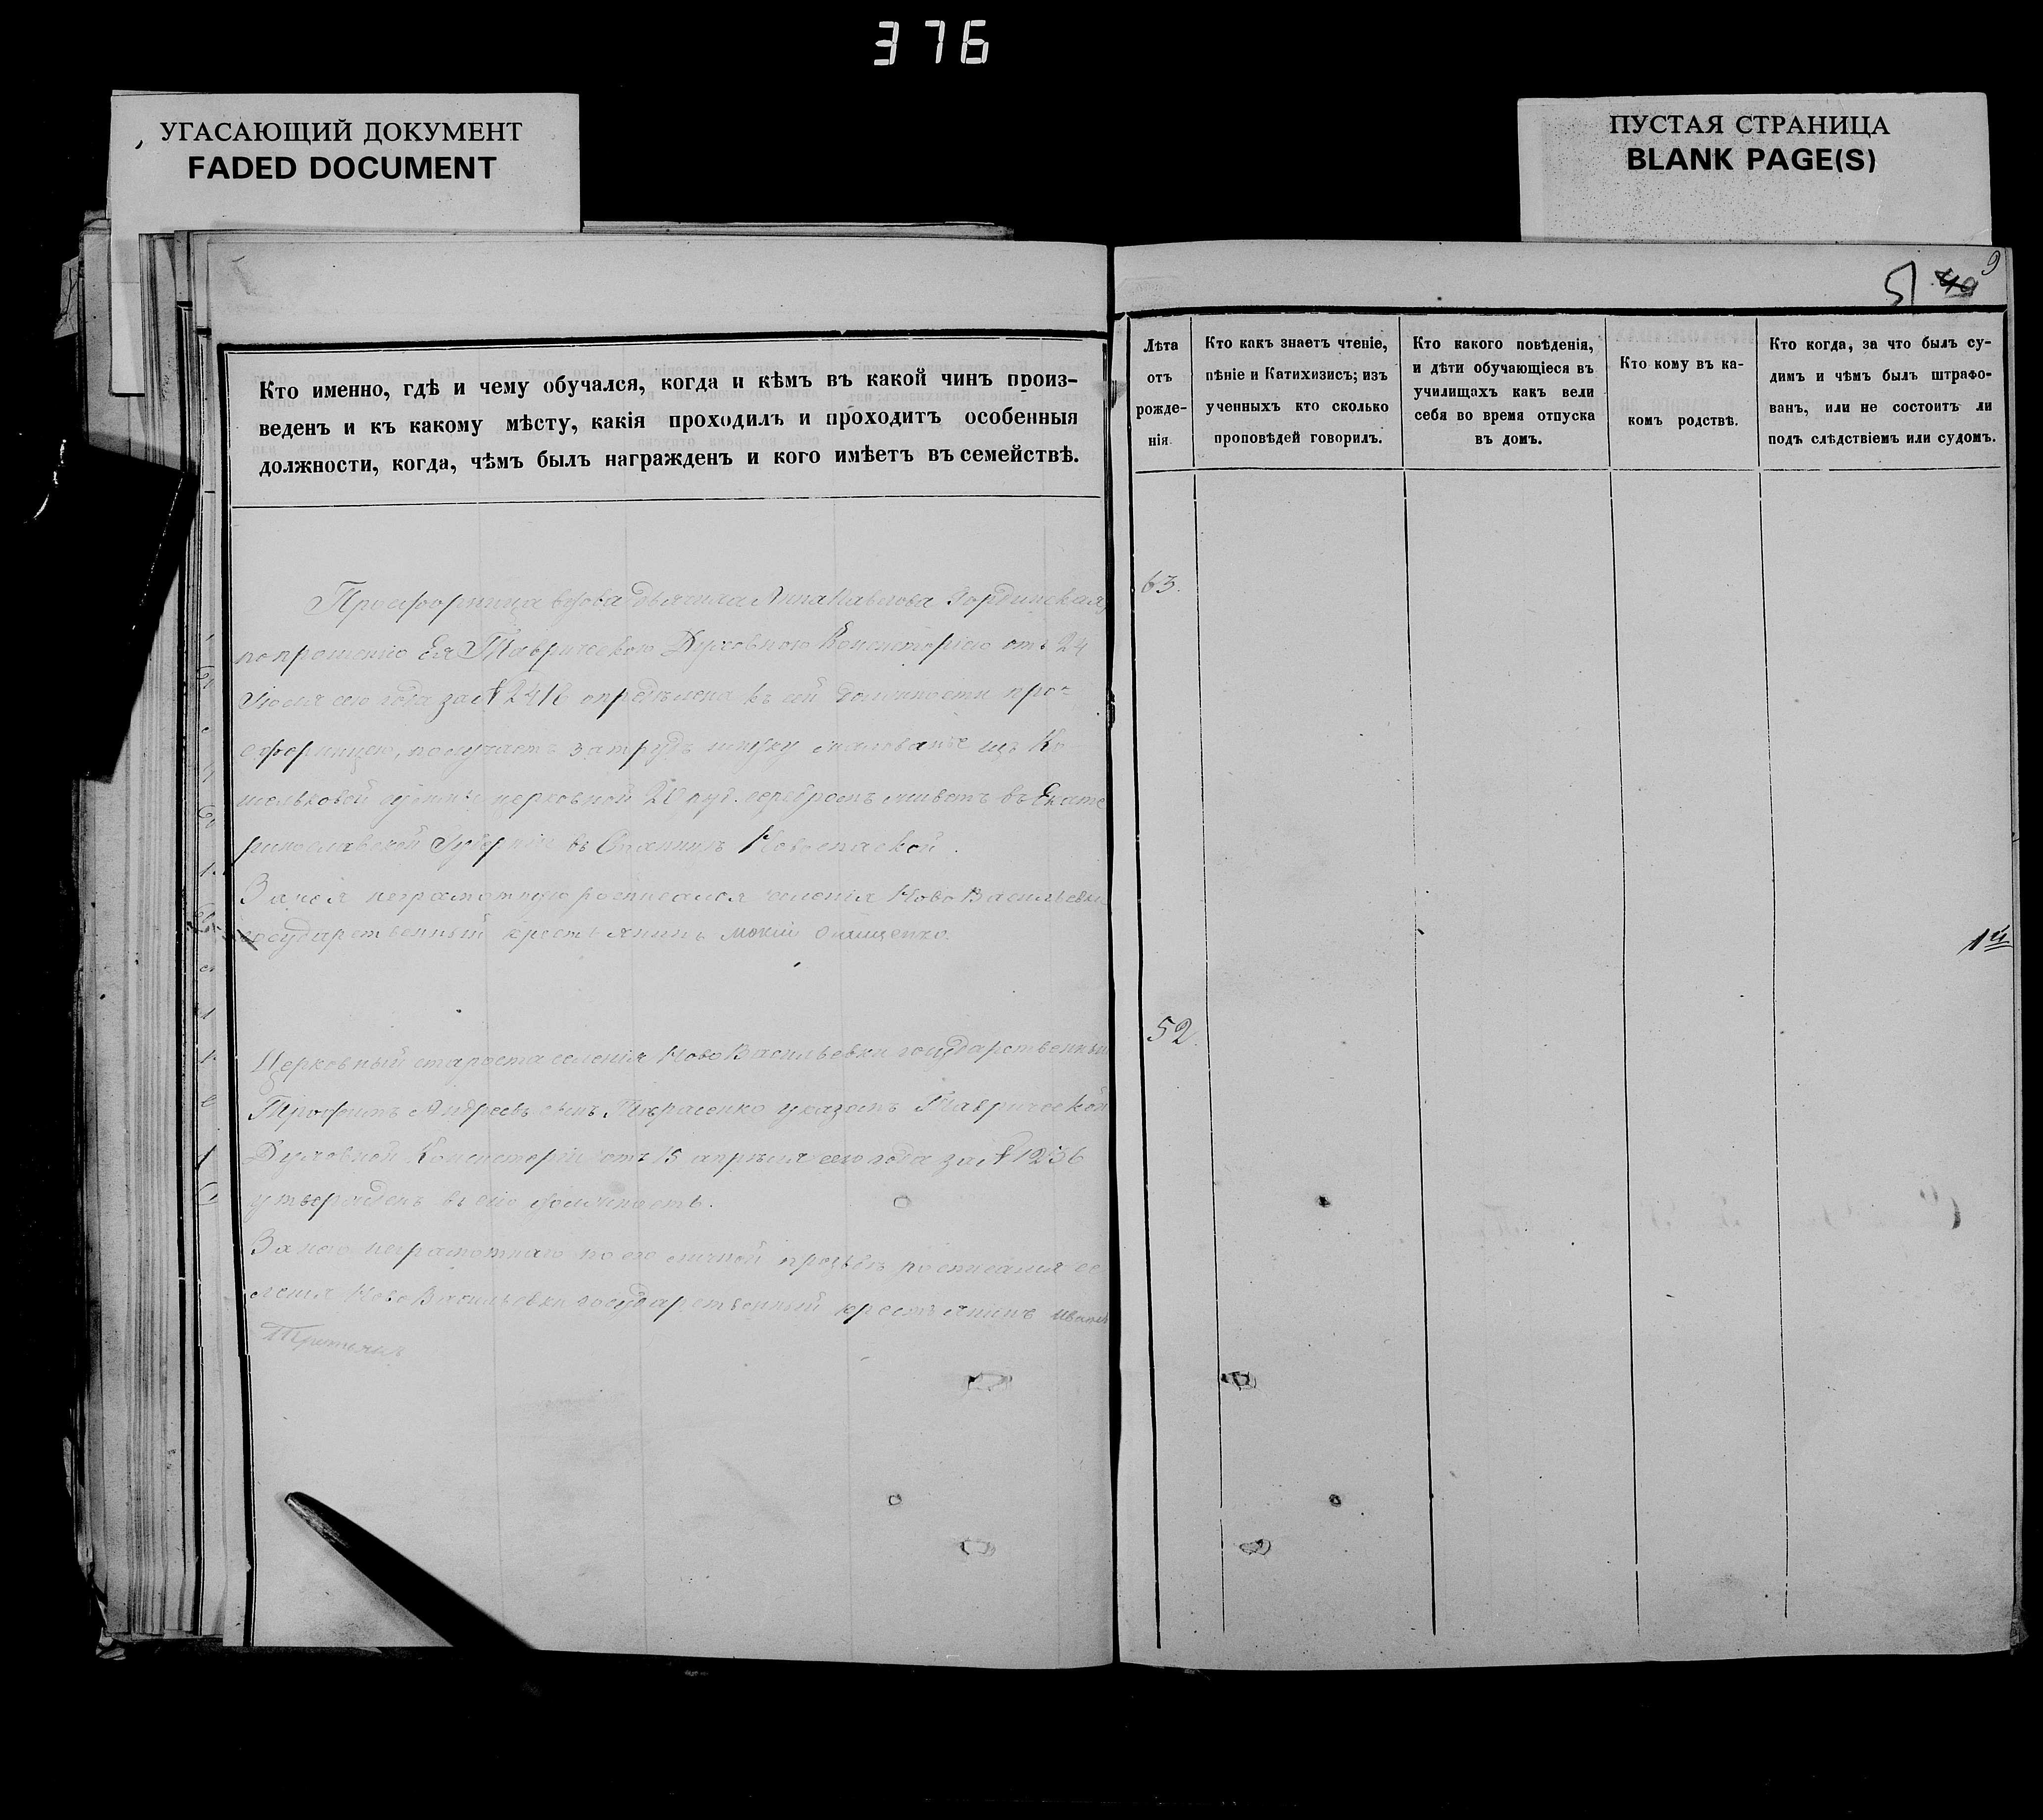 376
УГАСАЮЩИЙ ДОКУМЕНТ
FADED DOCUMENT
ПУСТАЯ СТРАНИЦА
BLANK PAGE(S)
9
51 49
Кто именно, гдѣ и чему обучался, когда и кѣмъ въ какой чинъ произ-
веденъ и къ какому мѣсту, какія проходилъ и проходитъ особенныя
должности, когда, чѣмъ былъ награжденъ и кого имѣетъ въ семействѣ.
Просфорница вдова дьячиха Анна Павлова
по прошенію Ея Таврическою Духовною Консисторіею отъ 24
сего года за № 2416 опредѣлена къ сей должности про-
сфорницею, получаетъ за трудъ жалованье изъ Ко
шельковой суммы церковной 20 руб. серебромъ живетъ въ Екате
ринославской Губерніи въ Станицѣ Новоспаской.
За нея неграмотную росписался селенія Ново Васильевки
государственный крестьянинъ
Церковный староста селенія Ново Васильевки государственный
Трофимъ Андреевъ сынъ указомъ Таврической
Духовной Консисторіи отъ 15 апрѣля сего года за № 1236
утвержденъ въ сію должность.
За него неграмотнаго по его личной прозьбѣ росписался се
ленія Ново Васильевки государственный крестьянинъ
Лѣта
отъ
рожде-
нія.
Кто какъ знаетъ чтеніе,
пѣніе и Катихизисъ; изъ
ученныхъ кто сколько
проповѣдей говорилъ.
Кто какого повѣденія,
и дѣти обучающіеся въ
училищахъ какъ вели
себя во время отпуска
въ домъ.
Кто кому въ ка-
комъ родствѣ.
Кто когда, за что былъ су-
димъ и чѣмъ былъ штрафо-
ванъ, или не состоитъ ли
подъ слѣдствіемъ или судомъ.
63.
52.